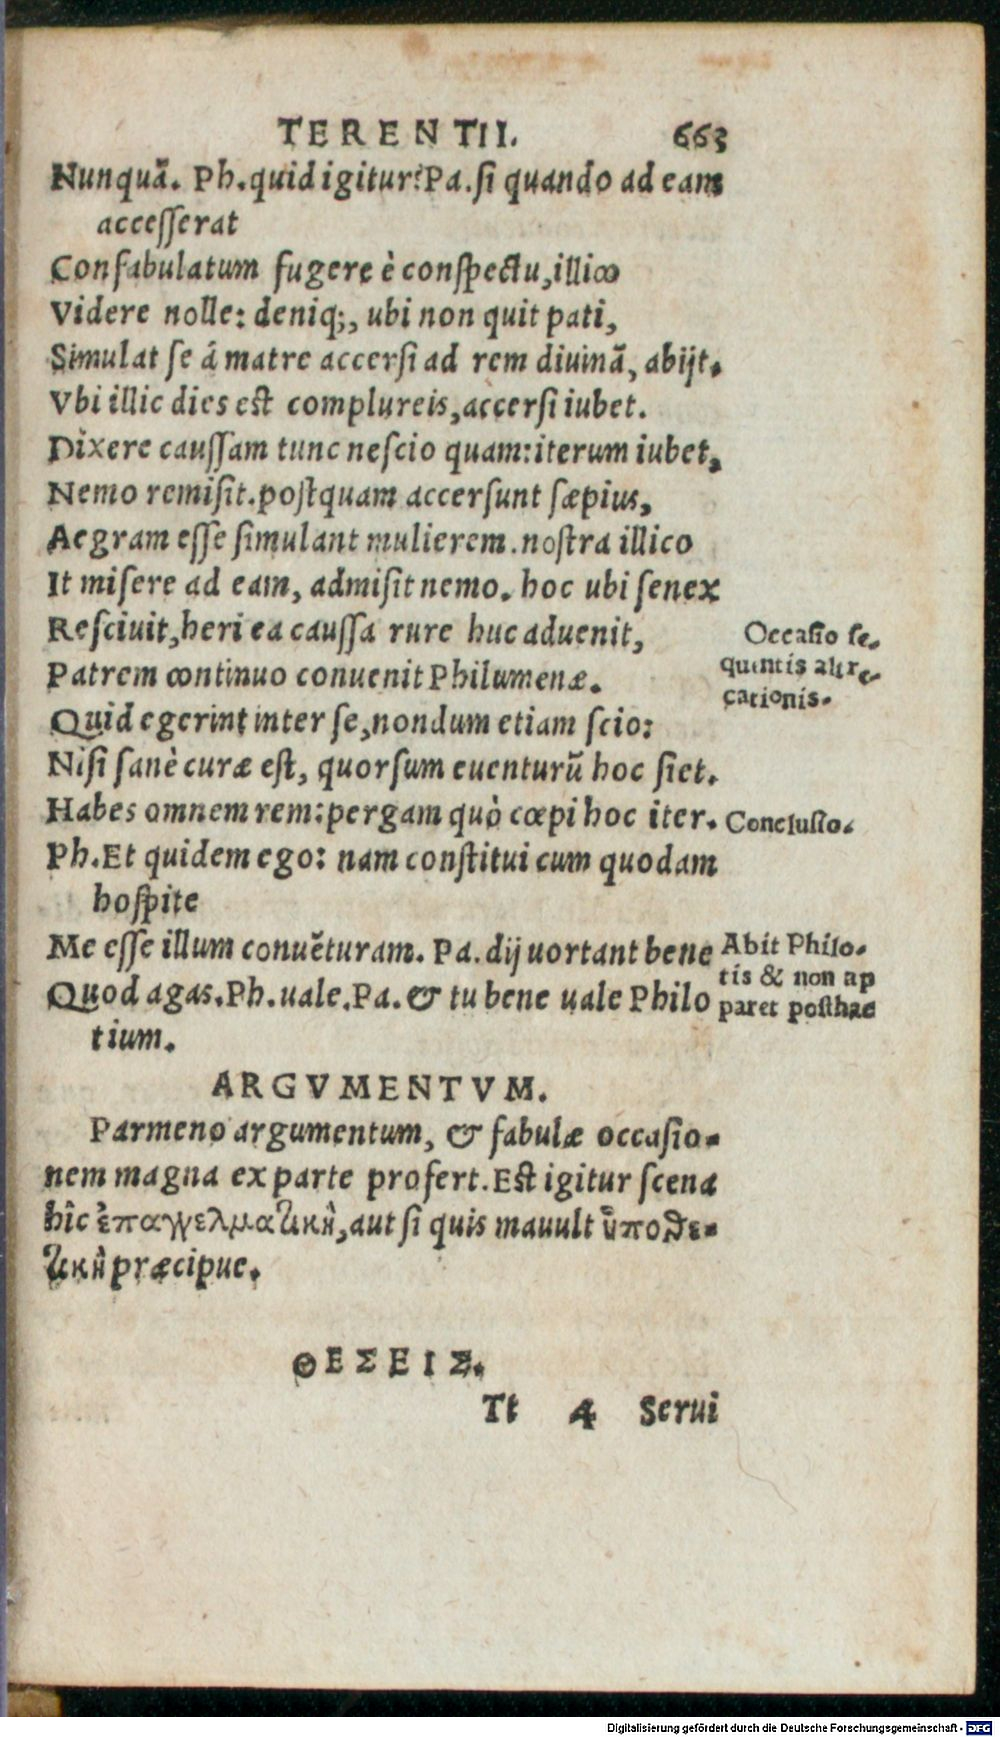 TERENTII. 663
Nunquã. Ph. quid igitur? Pa. si quando ad eam
accesserat
Confabulatum fugere è conspectu, illico
Videre nolle: deniq;, ubi non quit pati,
Simulat se á matre accersi ad rem diuinã, abijt.
Vbi illic dies est complureis, accersi iubet.
Dixere caussam tunc nescio quam: iterum iubet.
Nemo remisit. postquam accersunt sæpius,
Aegram esse simulant mulierem. nostra illico
It misere ad eam, admisit nemo. hoc ubi senex
Resciuit, heri ea caussa rure huc aduenit,
Occasio se.
Patrem continuo conuenit Philumenæ.
quentis altre-
cationis.
Quid egerint inter se, nondum etiam scio:
Nisi sanè curæ est, quorsum euenturũ hoc siet.
Habes omnem rem: pergam quò cœpi hoc iter. Conclusio.
Ph. Et quidem ego: nam constitui cum quodam
hospite
Me esse illum conuẽturam. Pa. dij uortant bene
Abit Philo.
tis & non ap
Quod agas. Ph. uale. Pa. & tu bene uale Philo
paret posthac
tium.
ARGVMENTVM.
Parmeno argumentum, & fabulæ occasio-
nem magna ex parte profert. Est igitur scena
hîc ἐπαγγελματικὴ, aut si quis mauult ὑποθε-
τικὴ præcipue.
ΘΕΣΕΙΣ.
Tt 4 Serui
Digitalisierung gefördert durch die Deutsche Forschungsgemeinschaft - DFG